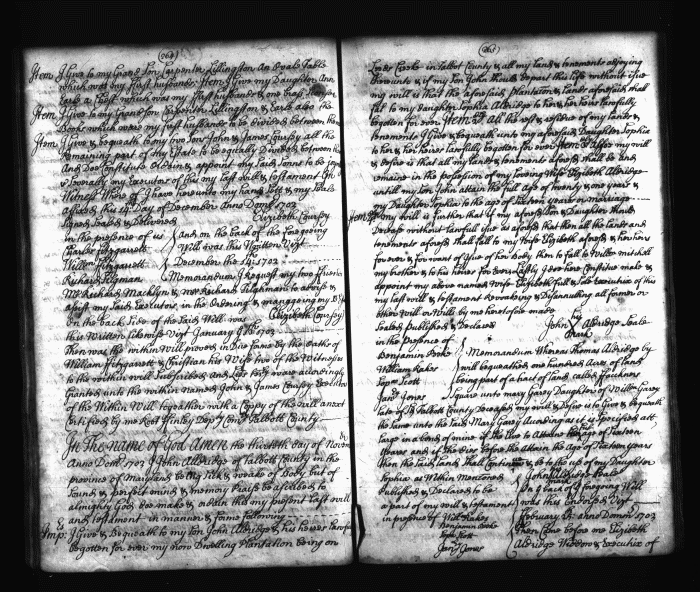 (262)
Item I Give to my Grand Son Carpenter Lillingston An Ovale Table
which was my first husbands Item I Give my Daughter Ann
Earle a Chest which was my first husbands & one brass
Item I Give to my Grand Son Carpenter Lillingston & Earle also the
Books which were my first husbands to be divided between
Item I Give & bequeath to my two Sons John & James Coursey all the
remaining part of my Estate to be equally Divided between
And Doe Constitute Ordaine, appoint my said Sonns to be
& severally my Executors of this my last will & testament In
Witness Where of I have hereunto my hand Sett & my Seale
affixed this 14 day of December Anno Dom 1702
Signed Sealed & Delivered Elizabeth Coursey
in the presence of us And on the back of the foregoing
Charles Fitzgarrett Will was this Written Vizt
William Fitzgarrett December the 14: 1702
Richard Tilgman Memorandum I request my two
Mr Richard Macklyn & Mr Richard Tilghman to advise &
assist my said Executors in the Ordering & managing my
On the back Side of the said Will was Elizabeth Coursey
this Written likewise Vizt January 9th 1702
Then was the within Will proved in Due forme by the oaths of
William Fitzgarrett & Christian his Wife two of the Witnesses
to the within will Subscribed and were accordingly
Granted unto the within Named John & James Coursey Executors
of the Within Will together with a Copy of the Will annext
Certified by me Robt Finley Depy Com Talbott County
In the name of God Amen the thirtieth day of
Anno Dom 1702 I John Aldridge of Talbott County in the
province of Maryland being Sick & weake of Body but of
Sound & perfect mind & memory praise be ascribed to
almighty God doe make & ordain this my present last will
and testament in manner & forme following
Imp: I Give & Bequeath to my Son John Aldridge & his heires
begotten for ever my now Dwelling Plantation being on
(263)
Creeke in Talbot County & all my lands & tenements adjoying
thereunto & if my Son John should depart this life without issue
my will is that the aforesaid plantation & lands aforesaid shall
fall to my Daughter Sophia Aldridge to her & her heires lawfully
begotten for ever Item All the rest & residue of my lands &
tenements I Give & bequeath unto my aforesaid Daughter Sophia
to her & her heires lawfully begotten for ever Item Also my will
& desire is that all my lands & tenements aforesd shall be and
remaine in the possession of my loving wife Elizabeth Aldridge
untill my Son John attain the full age of twenty one years &
my Daughter Sophia to the age of Sixteen years or marriage
Item my will is further that if my aforesd Son & Daughter should
Decease without lawfull issue as aforesd that then all the lands and
tenements aforesd shall fall to my Wife Elizabeth aforesd & her heirs
forever & for want of issue of her Body then to fall to Willm Mitchell
my brother & to his heires for ever Lastly I doe here Constitue make &
appoint my above named Wife Elizabeth full & Sole Executrix of this
my last will & testament Revoaking & Disanulling all former or
other Will or Wills by me heretofore made
Sealed published & Declared John Aldridge Seale
in the presence of mark
Benjamin Memorandum Whereas Thomas Aldridge by
William Rakes will bequeathed one hundred Acres of land
Tego Scott being part of a tract of land called
Jane Jones Square unto Mary Garey Daughter of Willm Garey
late of Talbott County Deceased my will & desire is to Give & bequeath
the same unto the said Mary Garey According as it is Specified att
large in a bond of mine if she live to Attaine the age of Sixteen
years and if she dies before she Attain the Age of Sixteen years
then the said lands shall Continue & be to the use of my Daughter
Sophia as Within Mentioned John Aldridge Seale
Published & Declared to be On the back of the foregoing Will
a part of my will & testament was this Endorsed Vizt
in presence of Will Rakes February anno Domini 1702
Benjamin Then Came before me Elizabeth
Tego Scott Aldridge Widdow & Executrix of
Jane Jones